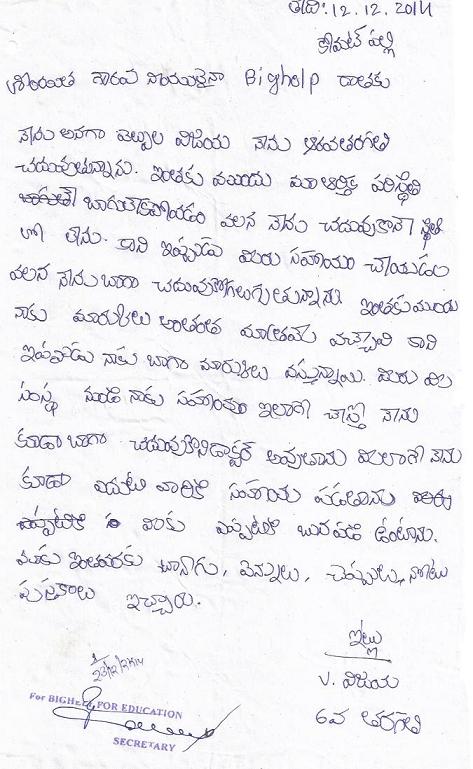 తేది: 12.12.2014
కోమటి పల్లి
గౌరవ నీయులైనా Bighelp దాతకు
నాను అనగా విజయ నాను ఆరవతరగతి
చదువుతున్నాను. ఇంతకు ముందు మా ఆర్థిక పరిస్థితి
వలన నాను చదువుకొనే స్థితి
లో లేను. కాని ఇప్పుడు మీరు సహాయం చేయడం
వలన నాను బాగా చదువుకోగలుగుతున్నాను ఇంతకుముందు
నాకు మార్కులు అంతంత మాత్రమే వచ్చేవి కాని
ఇప్పుడు నాకు బాగా మార్కులు వస్తున్నాయి. మీరు మీ
సంస్థ నుండి నాకు సహాయం ఇలాగే చేస్తే నాను
కూడా బాగా చదువుకొని డాక్టర్ అవుతాను మీలాగే నేను
కూడా ఎదుటి వారికి సహాయ పడతాను
మీకు ఎప్పటికి ఋణపడి ఉంటాను.
మాకు ఇంతవరకు బ్యాగు, పెన్నులు, చెప్పులు, నోటు
పుస్తకాలు ఇచ్చారు.
ఇట్లు
V. విజయ
6వ తరగతి
23/12/2014
For BIGHELP FOR EDUCATION
SECRETARY